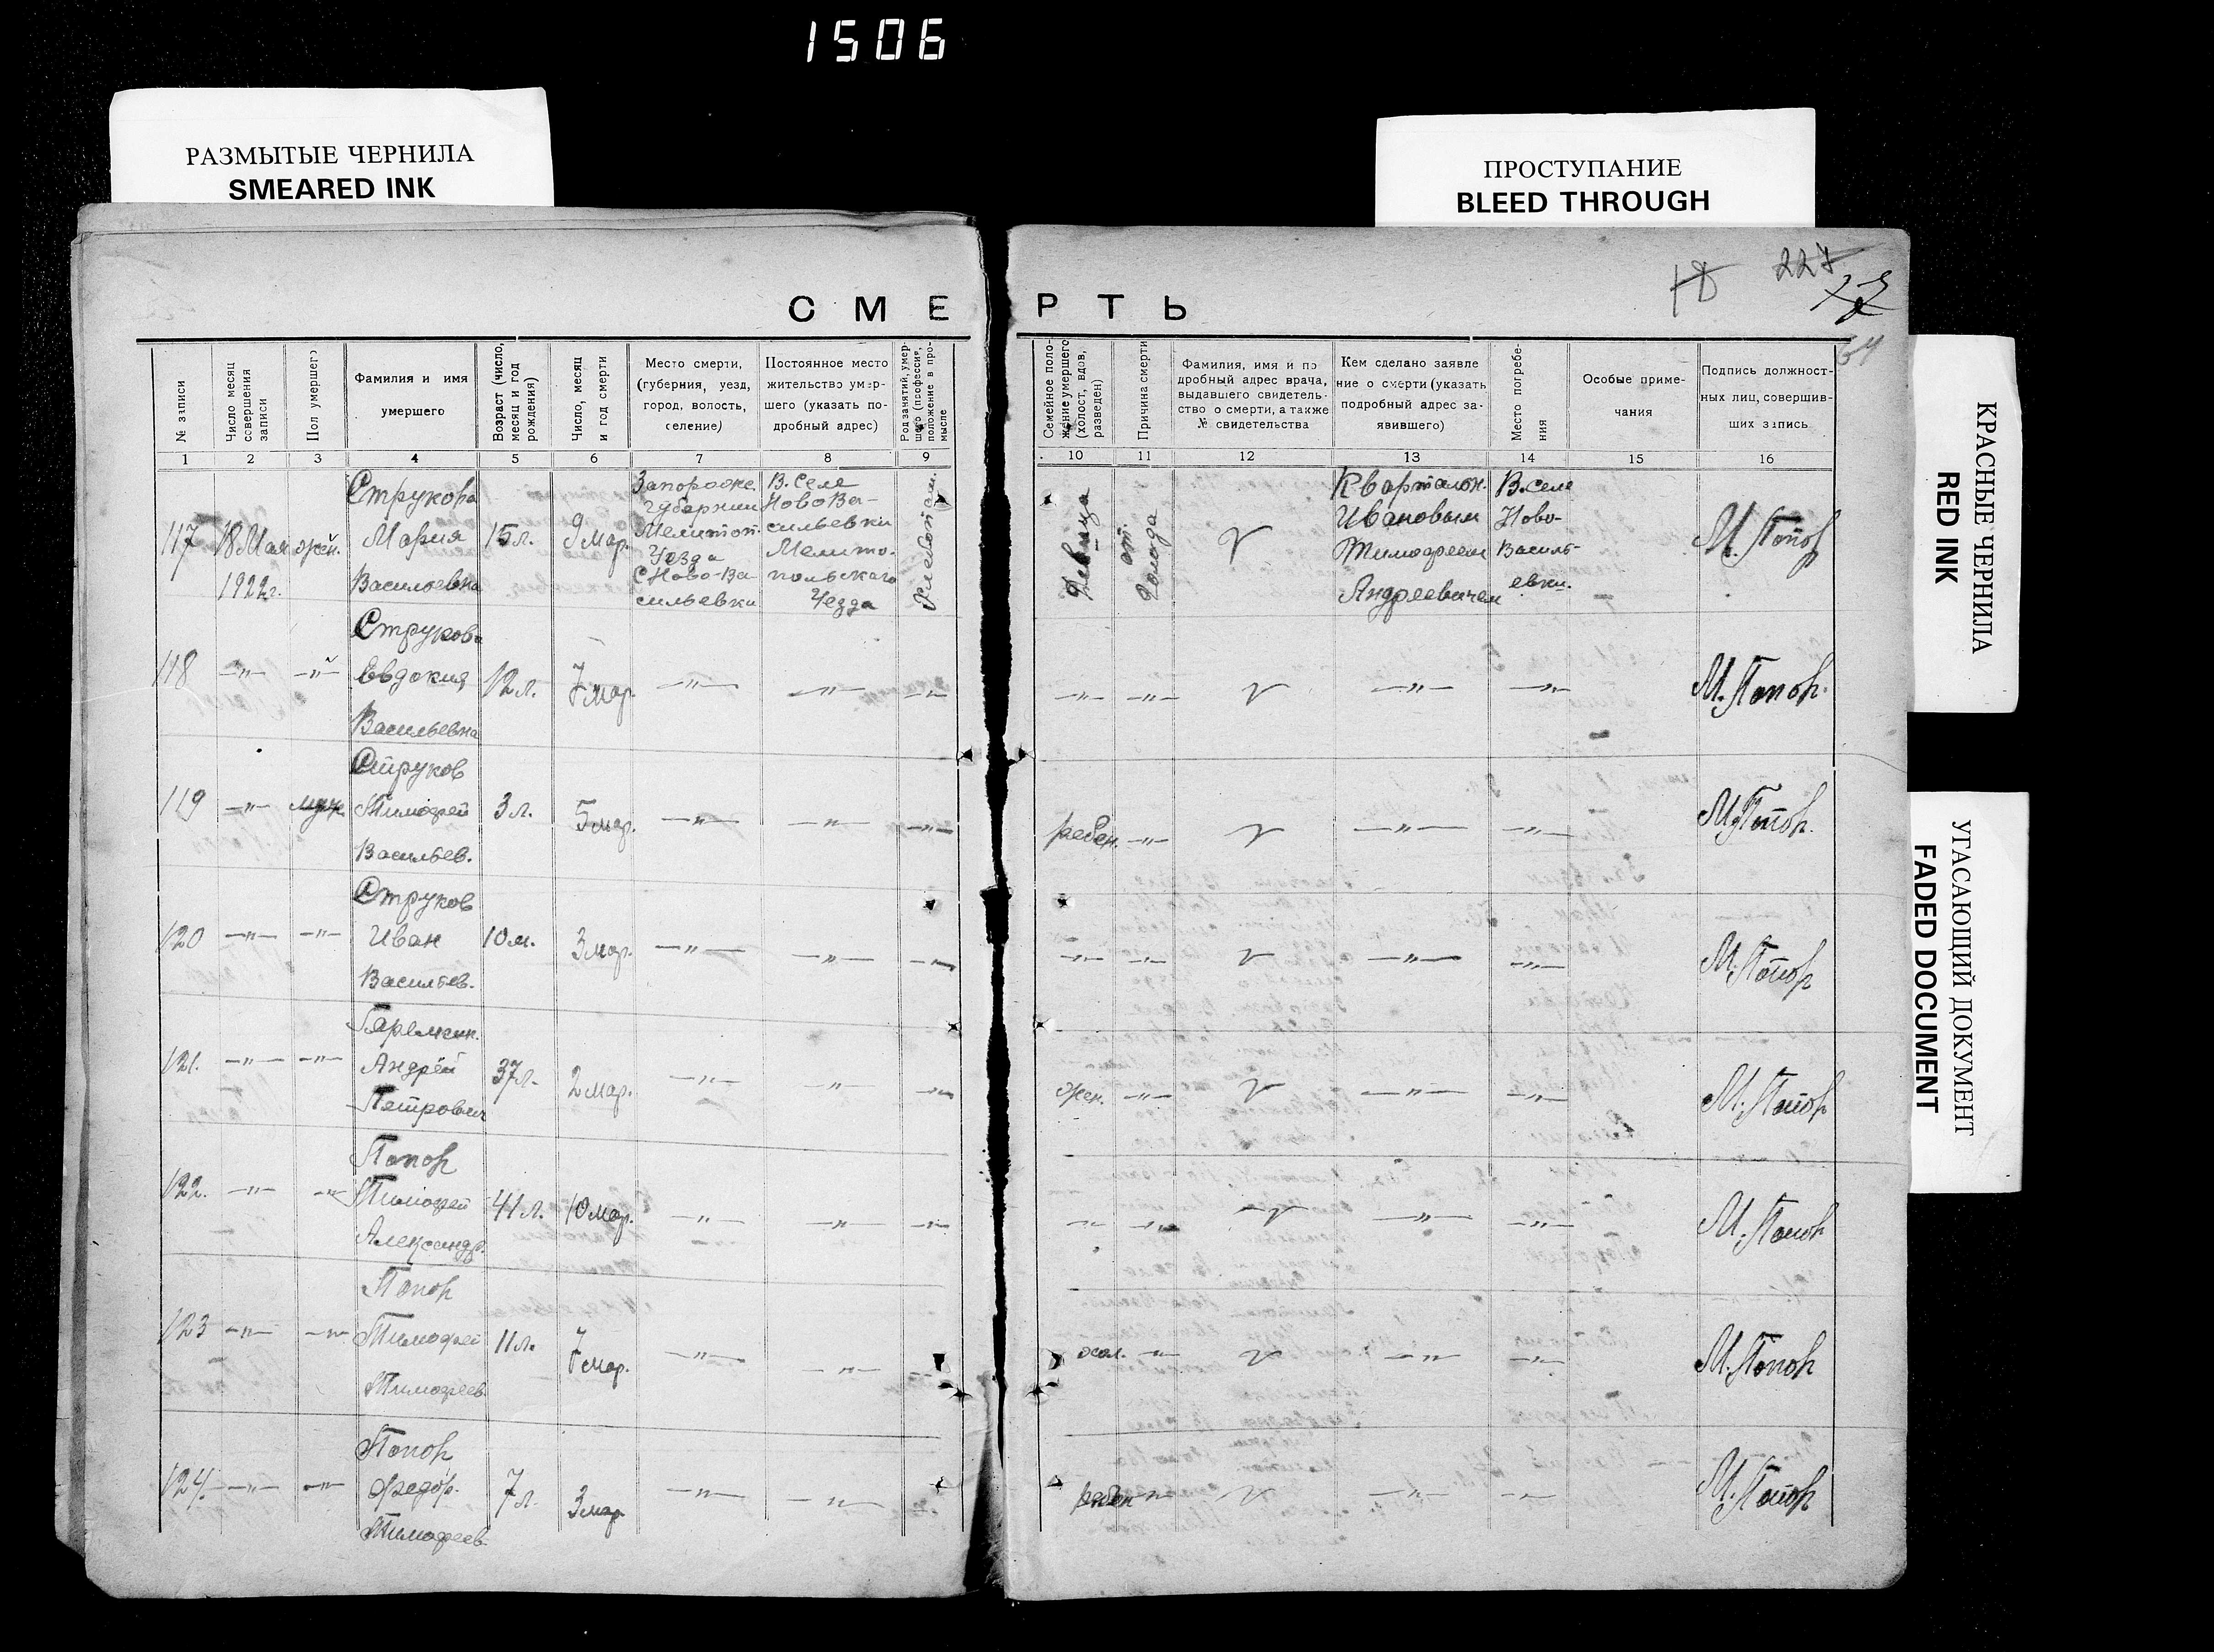 1506
РАЗМЫТЫЕ ЧЕРНИЛА
SMEARED INK
ПРОСТУПАНИЕ
BLEED THROUGH
КРАСНЫЕ ЧЕРНИЛА
RED INK
УГАСАЮЩИЙ ДОКУМЕНТ
FADED DOCUMENT
18 227
64
СМЕРТЬ
№ записи
Число месяц совершения записи
Пол умершего
Фамилия и имя
умершего
Возраст (число, месяц и год рождения)
Число, месяц и год смерти
Место смерти,
(губерния, уезд,
город, волость,
селение)
Постоянное место
жительство умер-
шего (указать по-
дробный адрес)
Род занятий, умер-
шего (профессия,
положение в про-
мысле
Семейное поло-
жение умершего
(холост, вдов,
разведен)
Причина смерти
Фамилия, имя и по
дробный адрес врача,
выдавшего свидетель-
ство о смерти, а также
№ свидетельства
Кем сделано заявле
ние о смерти (указать
подробный адрес за-
явившего)
Место погребе-
ния
Особые приме-
чания
Подпись должност-
ных лиц, совершив-
ших запись
1 2 3 4 5 6 7 8 9 10 11 12 13 14 15 16
117 18 Мая 1922г. жен.
Струкова
Мария
Васильевна
15 л. 9 мар.
Запорожс.
Губернии
Мелитоп.
Уезда
С Ново-Ва-
сильевки
В. Селе
Ново Ва-
сильевки
Мелито-
польскаго
Уезда
Хлебопаш.
Девица
от Голода
Квартальн.
Ивановым
Тимофеем
Андреевичем
В. Селе
Ново-
Василь-
евки.
М. Попов
118 -"- -"-
Струкова
Евдокия
Васильевна
12 л. 7 мар. -"- -"- -"- -"- -"- -"- -"- М. Попов.
119 -"- муж.
Струков
Тимофей
Васильев.
3 л. 5 мар. -"- -"- -"- ребен. -"- -"- -"- М Попов.
120 -"- -"-
Струков
Иван
Васильев.
10 м. 3 мар. -"- -"- -"- -"- -"- -"- -"- М. Попов
121. -"- -"-
Андрей
Петрович
37 л. 2 мар. -"- -"- -"- жен. -"- -"- -"- М. Попов
122. -"- -"-
Попов
Тимофей
Александр.
41 л. 10 мар. -"- -"- -"- -"- -"- -"- -"- М. Попов
123 -"- -"-
Попов
Тимофей
Тимофеев
11 л. 7 мар. -"- -"- хол. -"- -"- -"- М. Попов
124. -"- -"-
Попов
Федор.
Тимофеев.
7 л. 3 мар -"- -"- ребен -"- -"- -"- М. Попов